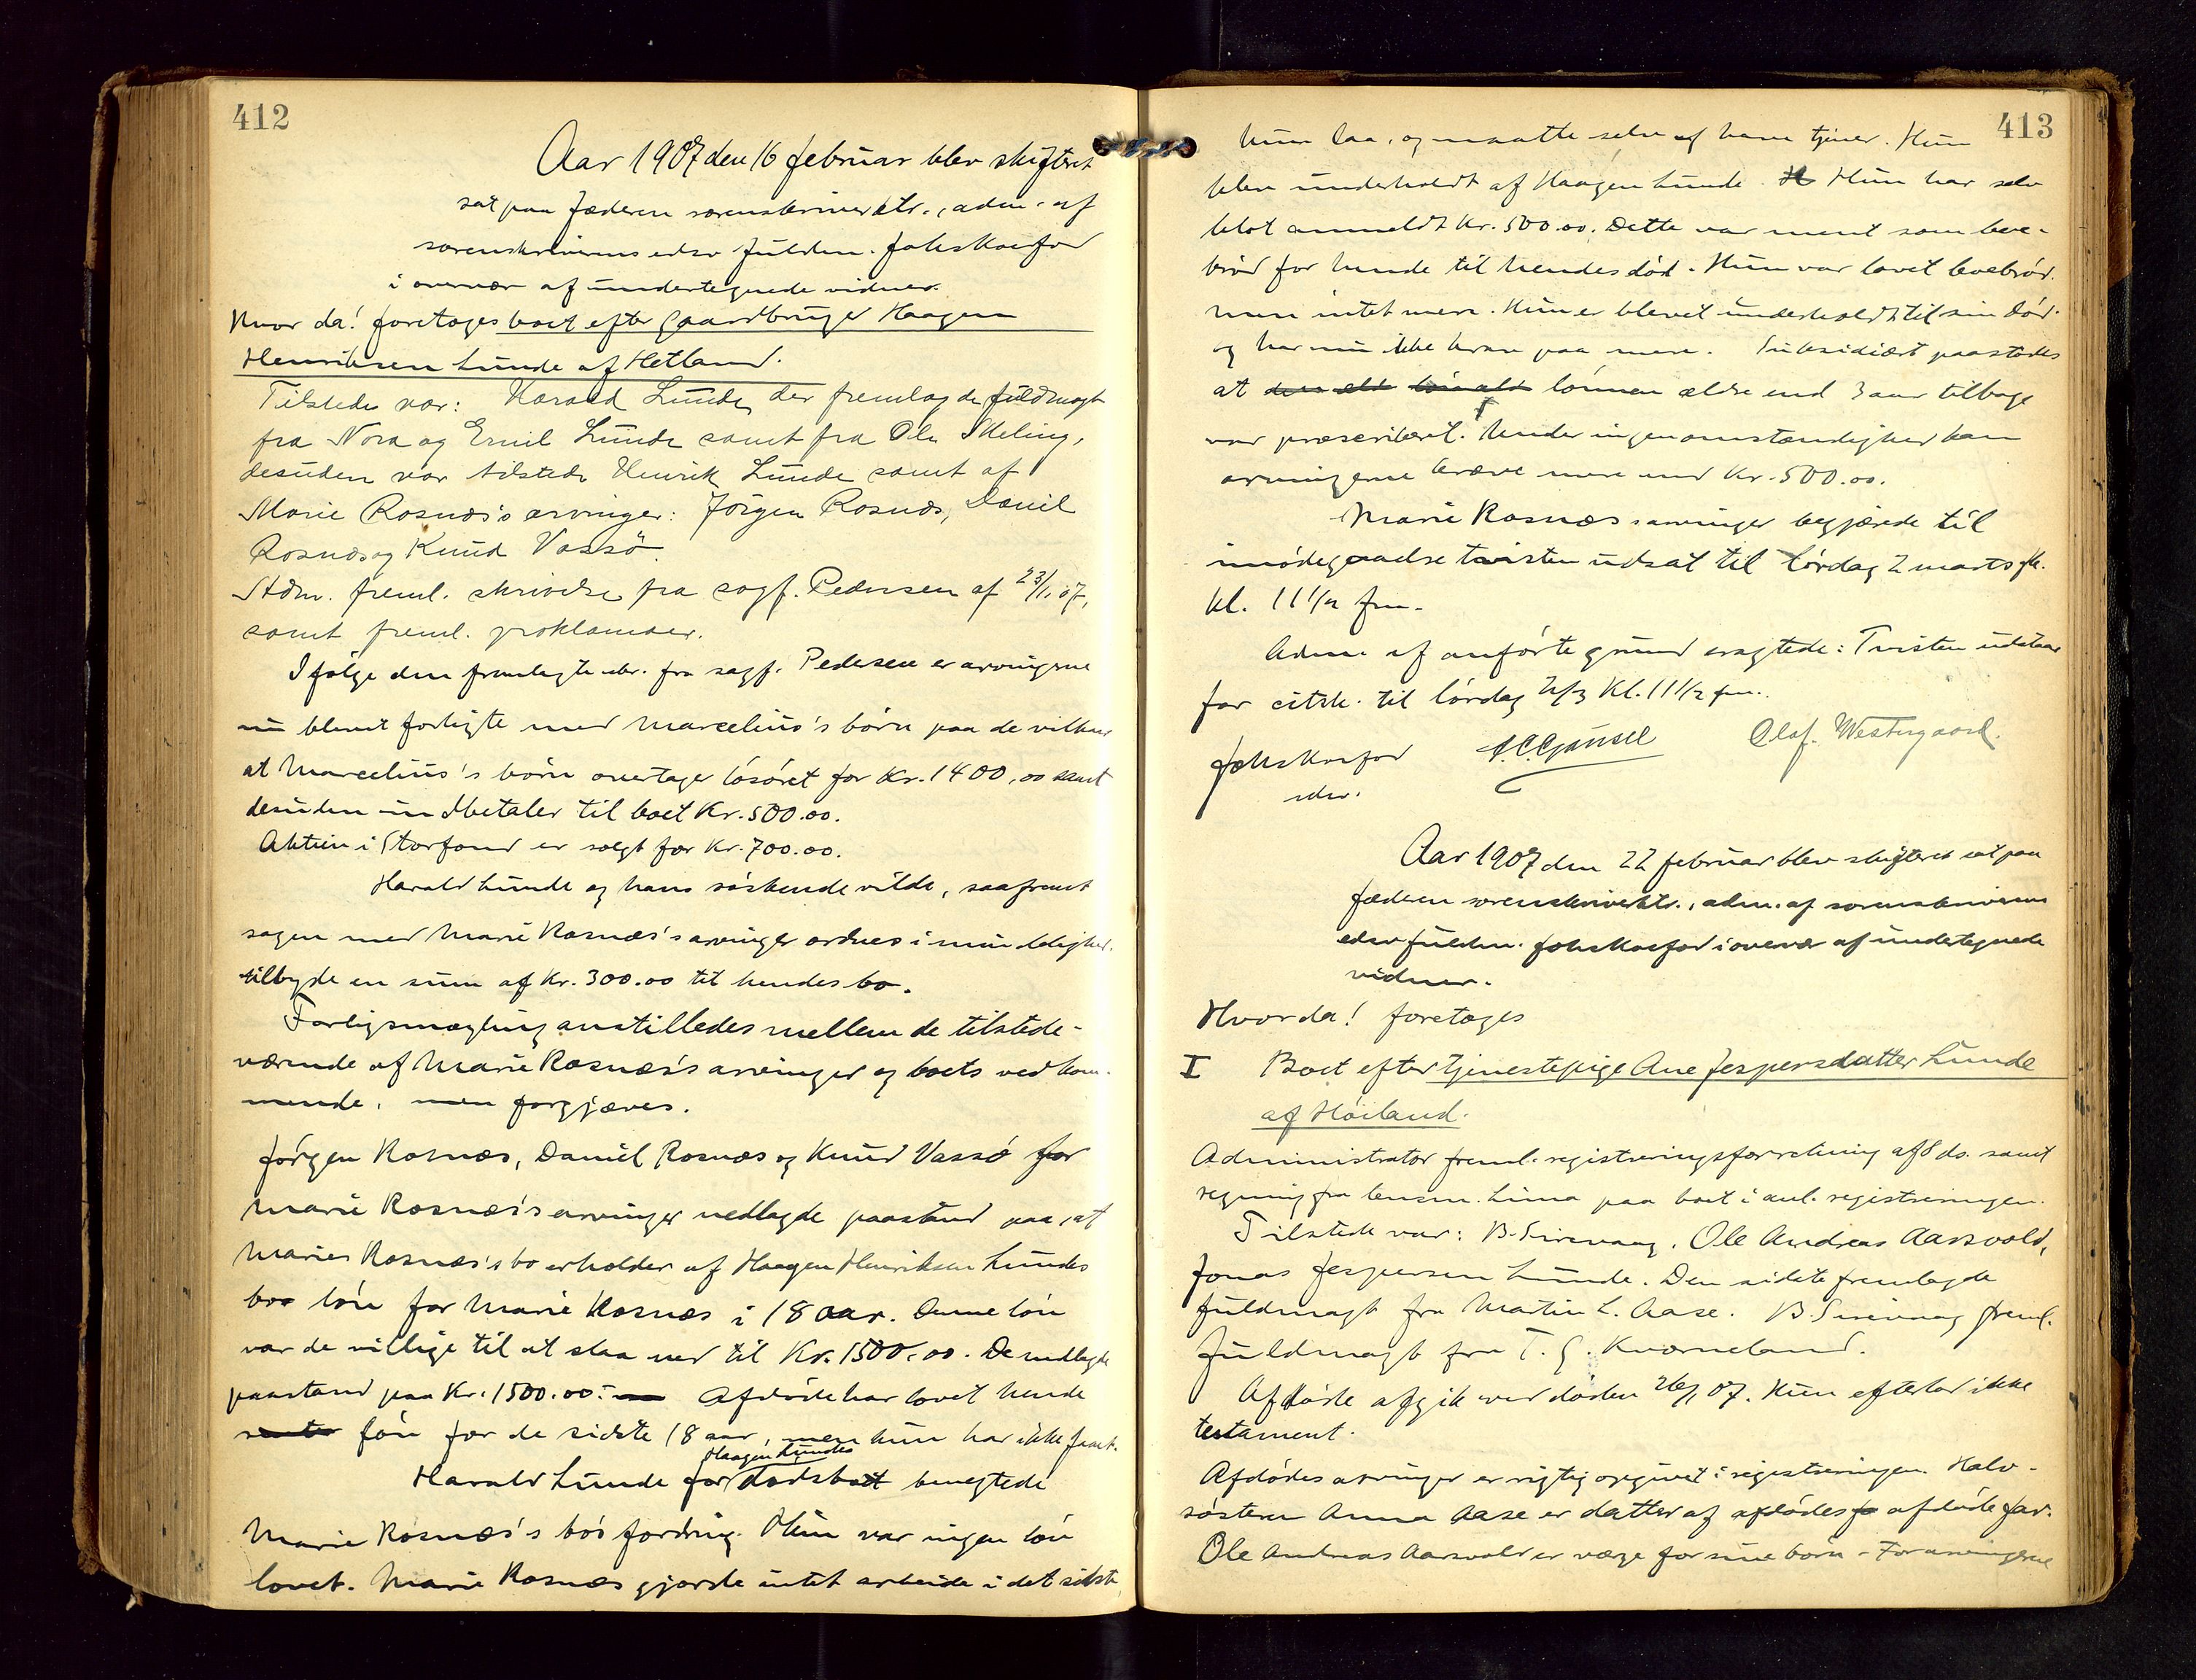 412
Aar 1907 den 16 februar blev skifteret
sat paa Jæderen sorenskriverktr., adm. af
sorenskriverens edsv fuldm. Johs Koefod
i overvær af undertegnede vidner.
Hvor da! foretoges boet efter gaardbruger Haagen
Henriksen Lunde af Hetland.
Tilstede var: Harald Lunde, der fremlagde fuldmagt
fra Nora og Emil Lunde samt fra Ole Skeling,
desuden var tilstede Henrik Lunde samt af
Marie Rosnæs's arvinger: Jörgen Rosnæs, Daniel
Rosnæs og Knud Vassö
Adm. freml. skrivelse fra sagf. Pedersen af 23/1 07,
samt freml. proklamaer.
Ifølge den fremlagte skr. fra sagf. Pedersen er arvingerne
nu blevet forligte med Marcelius's børn paa de vilkaar
at Marcelius's børn overtager løsøret for Kr. 1400,00 samt
desuden indbetaler til boet Kr. 500.00.
Aktien i Storfond er solgt for Kr. 700.00.
Harald Lunde og hans søskende vilde, saafremt
sagen med Marie Rosnæs's arvinger ordnes i mindelighed.
tilbyde en sum af Kr. 300.00 til hendes bo.
Forligsmægling anstilledes mellem de tilstede-
værende af Marie Rosnæs's arvinger og boets vedkom-
mende, men forgjæves.
Jørgen Rosnæs, Daniel Rosnæs og Knud Vassø for
Marie Rosnæs's arvinger nedlagde paastand paa, at
Maries Rosnæs's bo erholder af Haagen Henriksen Lundes
bo løn for Marie Rosnæs i 18 aar. Denne løn
var de villige til at slaa ned til Kr. 1500,00. De nedlagde
paastand paa Kr. 1500.00. Afdøde har lovet hende
løn for de sidste 18 aar, men hun har ikke faaet.
Haagen Lundes
Harald Lunde for dødsboet benegtede
Marie Rosnæs's bos fordring. Hun var ingen løn
lovet. Marie Rosnæs gjorde intet arbeide i det sidste
413
hun laa, og maatte selv af have tjener. Hun
blev underholdt af Haagen Lunde. H Hun har selv
blot anmeldt Kr. 500.00. Dette var ment som leve-
brød for hende til hendes død. Hun var lovet levebrød.
men intet mere. Hun er blevet underholdt til sin død.
og har nu ikke krav paa mere. Subsidiært paastodes
at lønnen ældre end 3 aar tilbage
var præscriberet. Under ingen omstændighed kan
arvingerne kræve mere end Kr. 500.00.
Marie Rosnæs's arvinger begjærede til
imødegaaelse tvisten udsat til lørdag 2 marts
kl. 11 1/2 fm.
Adm. af anførte grund eragtede: Tvisten udstaar
for citsk. til lørdag 2/3 Kl. 11 1/2 fm.
Johs Koefod
edsv.
Olaf. Westergaard.
Aar 1907 den 22 februar blev skifteret sat paa
Jæderen sorenskriverktr., adm. af sorenskriverens
edsv fuldm. Johs Koefod i overvær af undertegnede
vidner.
Hvor da! foretoges
I Boet efter tjenestepige Ane Jespersdatter Lunde
af Høiland.
Administrator freml. registreringsforretning af 8 ds. samt
regning fra lensm. Lima paa boet i anl. registreringen.
Tilstede var: B. Sirevaag, Ole Andreas Aarsvold,
Jonas Jespersen Lunde. Den sidste fremlagde
fuldmagt fra Martin L. Aase. B. Sirevaag freml.
fuldmagt fra T. G. Kverneland.
Afdøde afgik ved døden 26/1 07. Hun efterlod ikke
testament.
Afdødes arvinger er rigtig opgivet i registreringen. Halv-
søsteren Anna Aase er datter af afdødes afdøde far.
Ole Andreas Aarsvold er værge for sine børn - For arvingerne